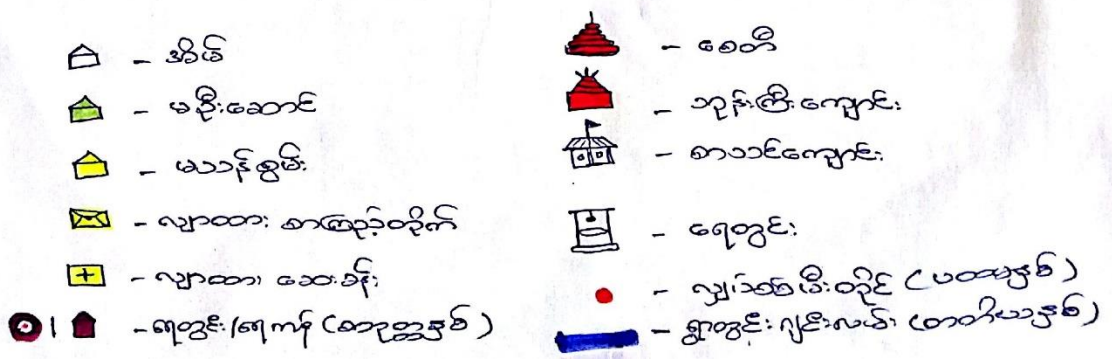 - အိမ်
- မဦးဆောင်
- မသန်စွမ်း
- လျာထား စာကြည့်တိုက်
- လျာထား ဆေးခန်း
- ရေတွင်း/ရေကန် (စတုတ္ထနှစ်)
- စေတီ
- ဘုန်းကြီးကျောင်း
- စာသင်ကျောင်း
- ရေတွင်း
- လျှပ်စစ်မီးတိုင် (ပထမနှစ်)
- ရွာတွင်းချင်းလမ်း (တတိယနှစ်)